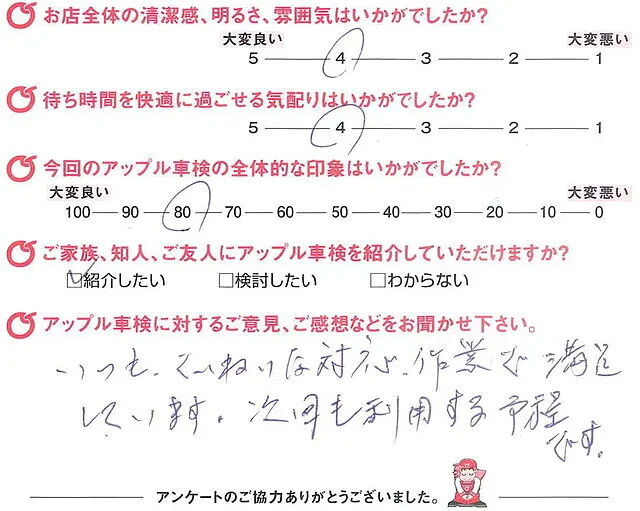 お店全体の清潔感、明るさ、雰囲気はいかがでしたか?
大変良い 大変悪い
5 4 3 2 1
待ち時間を快適に過ごせる気配りはいかがでしたか?
5 4 3 2 1
今回のアップル車検の全体的な印象はいかがでしたか?
大変良い 大変悪い
100 90 80 70 60 50 40 30 20 10 0
ご家族、知人、ご友人にアップル車検を紹介していただけますか?
紹介したい 検討したい わからない
アップル車検に対するご意見、ご感想などをお聞かせ下さい。
いつも、ていねいな対応、作業で満足
しています。次回も利用する予程
です。
アンケートのご協力ありがとうございました。